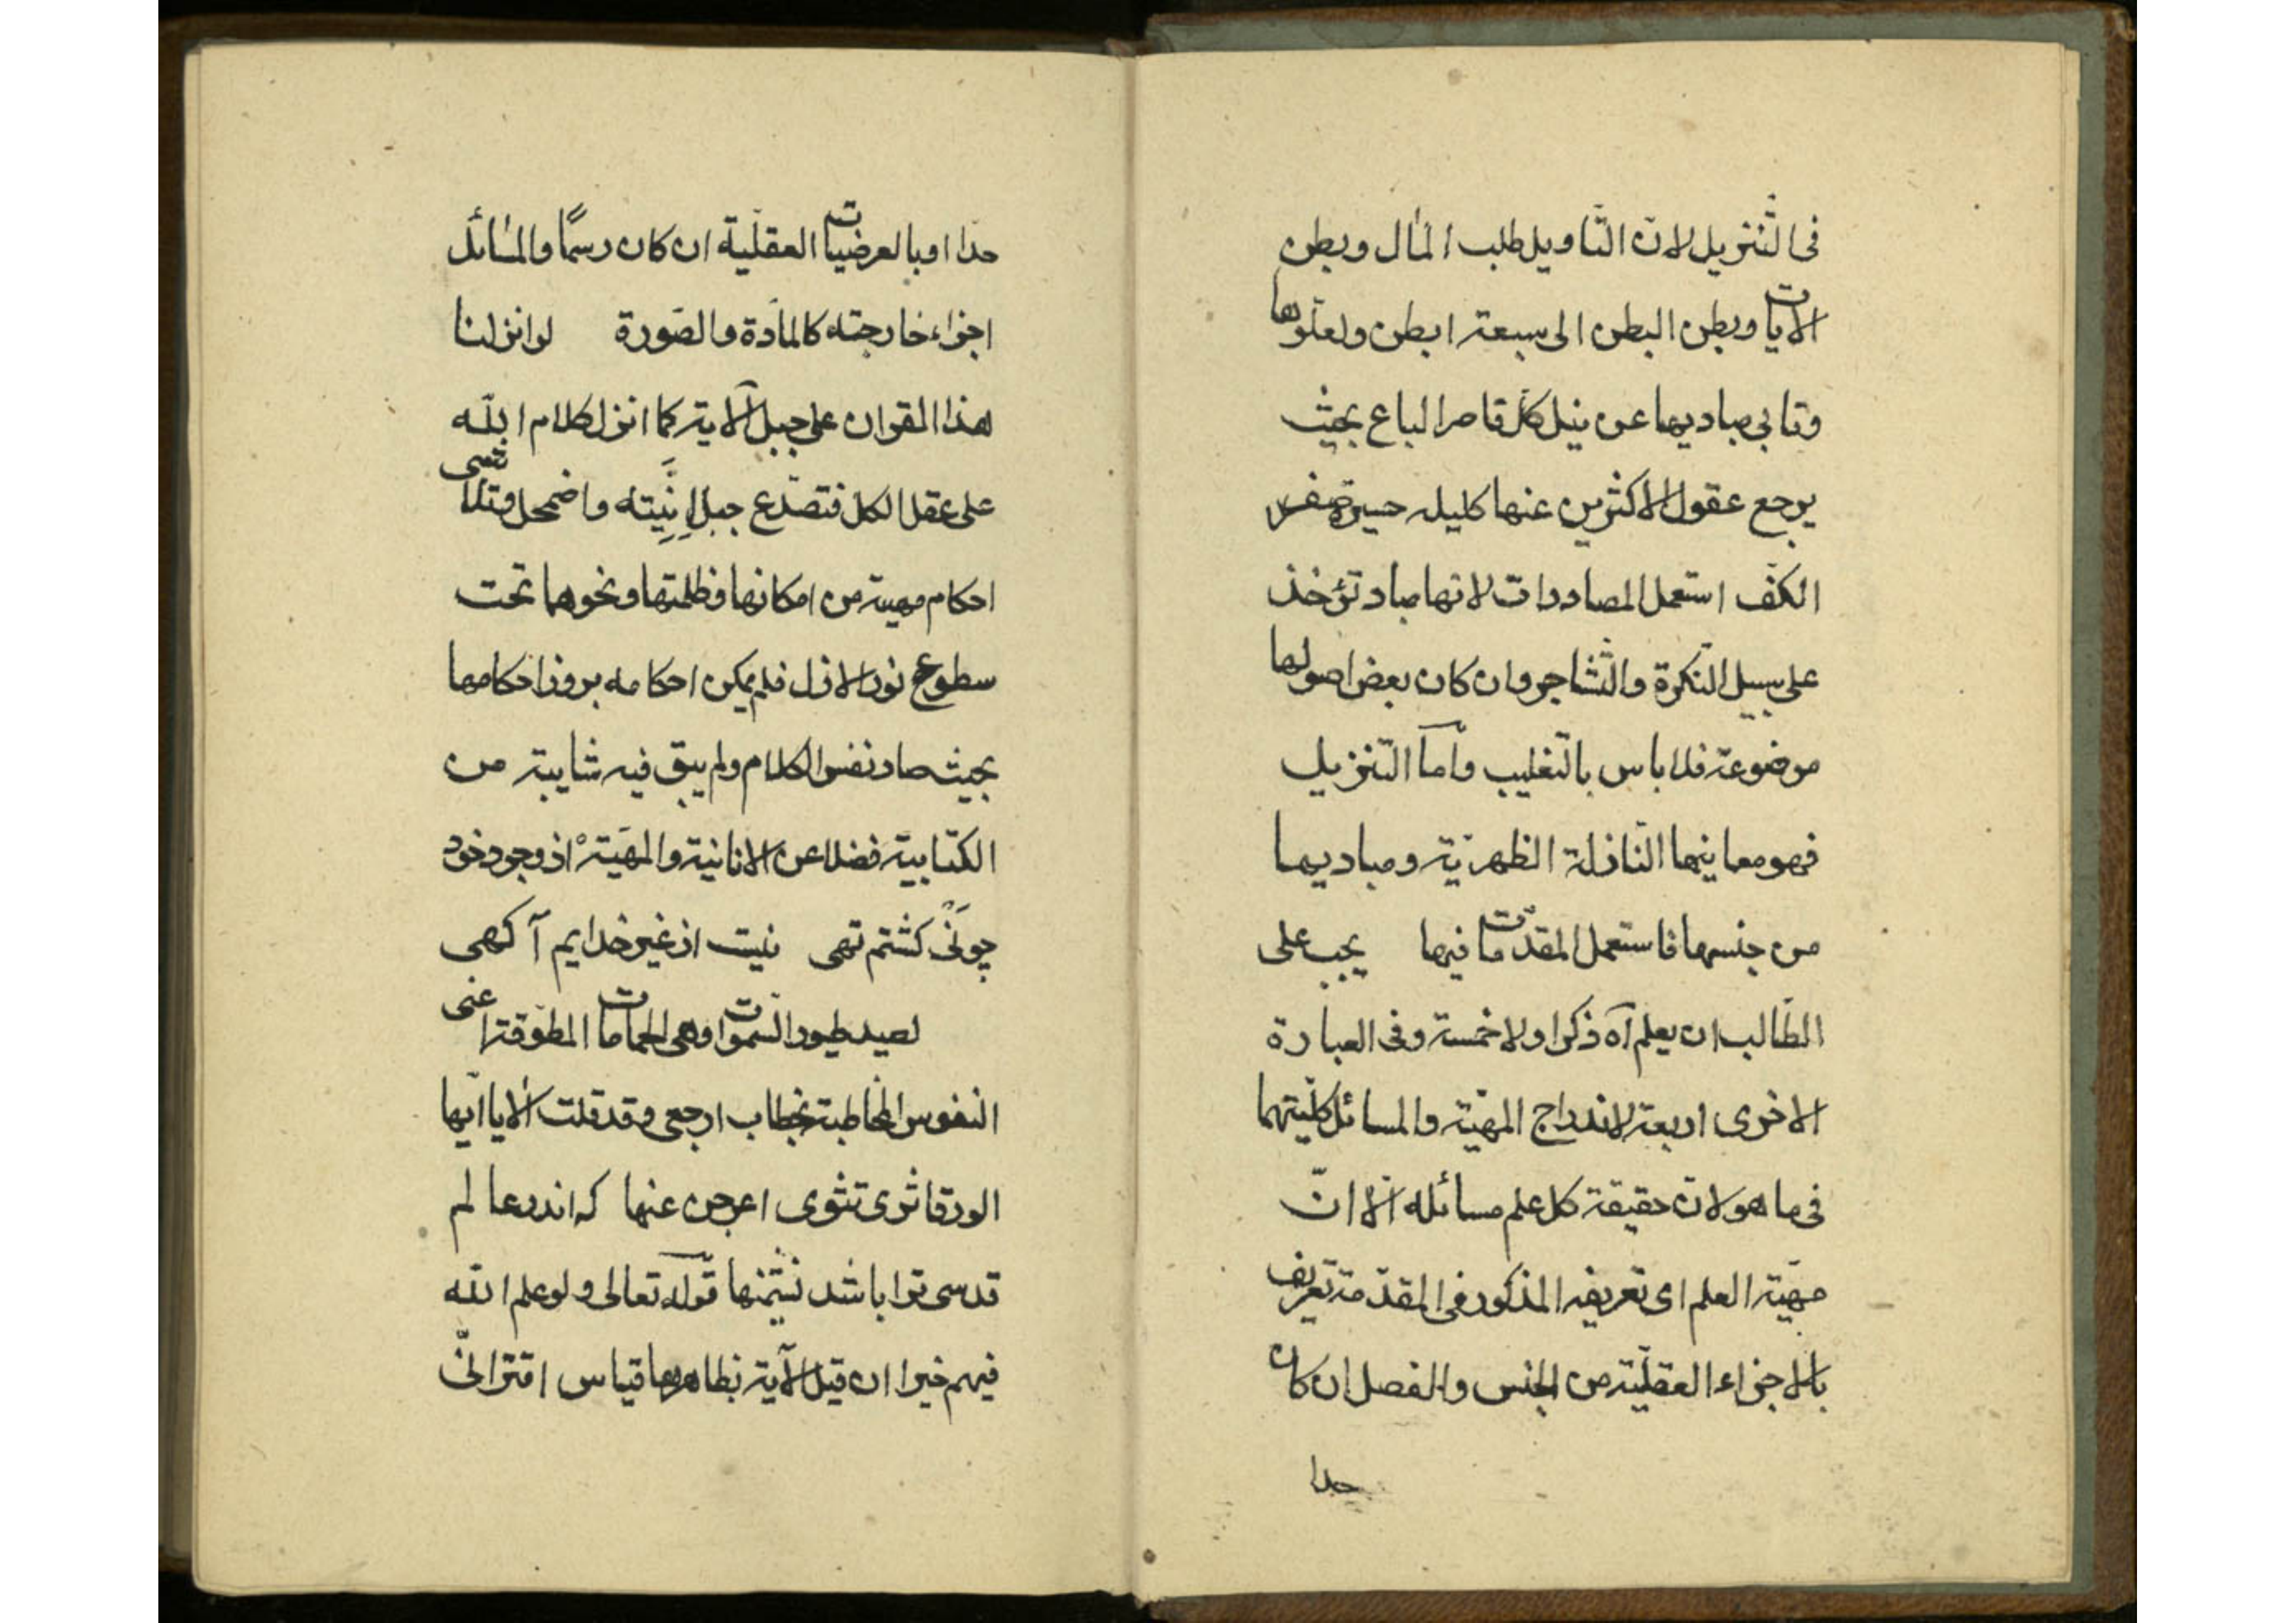 فى التّنزيل لانّ التّاويل طلب المال وبطن
الايات وبطن البطن الى سبعة ابطن ولعلوّها
وتابى مباديها عن نيل كلّ قاصر الباع بحيث
يرجع عقول الاكثرين عنها كليله حسيرة صفر
الكفّ استعمل المصادرات لانها مباد تؤخذ
على سبيل النكرة والتّشاجر وان كان بعض اصولها
موضوعة فلا باس بالتّغليب وامّا التّنزيل
فهو معاينها النّازلة الظهريّة ومباديها
من جنسها فاستعمل المقدّمات فيها يجب على
الطّالب ان يعلم آه ذكر اولا خمسة وفى العبارة
الاخرى اربعة لاندراج المهيّة والمسائل كليتهما
فى ما هو لانّ حقيقة كل علم مسائله الّا انّ
مهيّة العلم اى تعريفه المذكور فى المقدّمة تعريف
بالاجزاء العقليّة من الجنس والفصل ان كان
حدا
حدّا او بالعرضيات العقليّة ان كان رسمًا والمسائل
اجزاء خارجيّه كالمادّة والصّورة لو انزلنا
هذا القران على جبل الآية كما انزل كلام اللّه
على عقل الكل فتصدّع جبل اِنِّيَّته واضمحل وتلاشى
احكام مهية من امكانها وظلمتها ونحوهما تحت
سطوع نور الازل فلم يمكن احكامه بروز احكامها
بحيث صار نفس الكلام ولم يبق فيه شايبة من
الكتابية فضلا عن الانانية والمهَيّة از وجود خود
چو نَىْ گشتم تهى نيست از غير خدايم آگهى
لصيد طيور السّموات وهى الحمامات المطوّقة اعنى
النفوس المخاطبة بخطاب ارجعى وقد قلت الا يا ايّها
الورقا ثرى تثوى اعرجن عنها كه اندر عالم
قدسى ترا باشد نشيمنها قوله تعالى ولو علم اللّه
فيهم خيرا ان قيل الآية بظاهرها قياس اقترانىّ